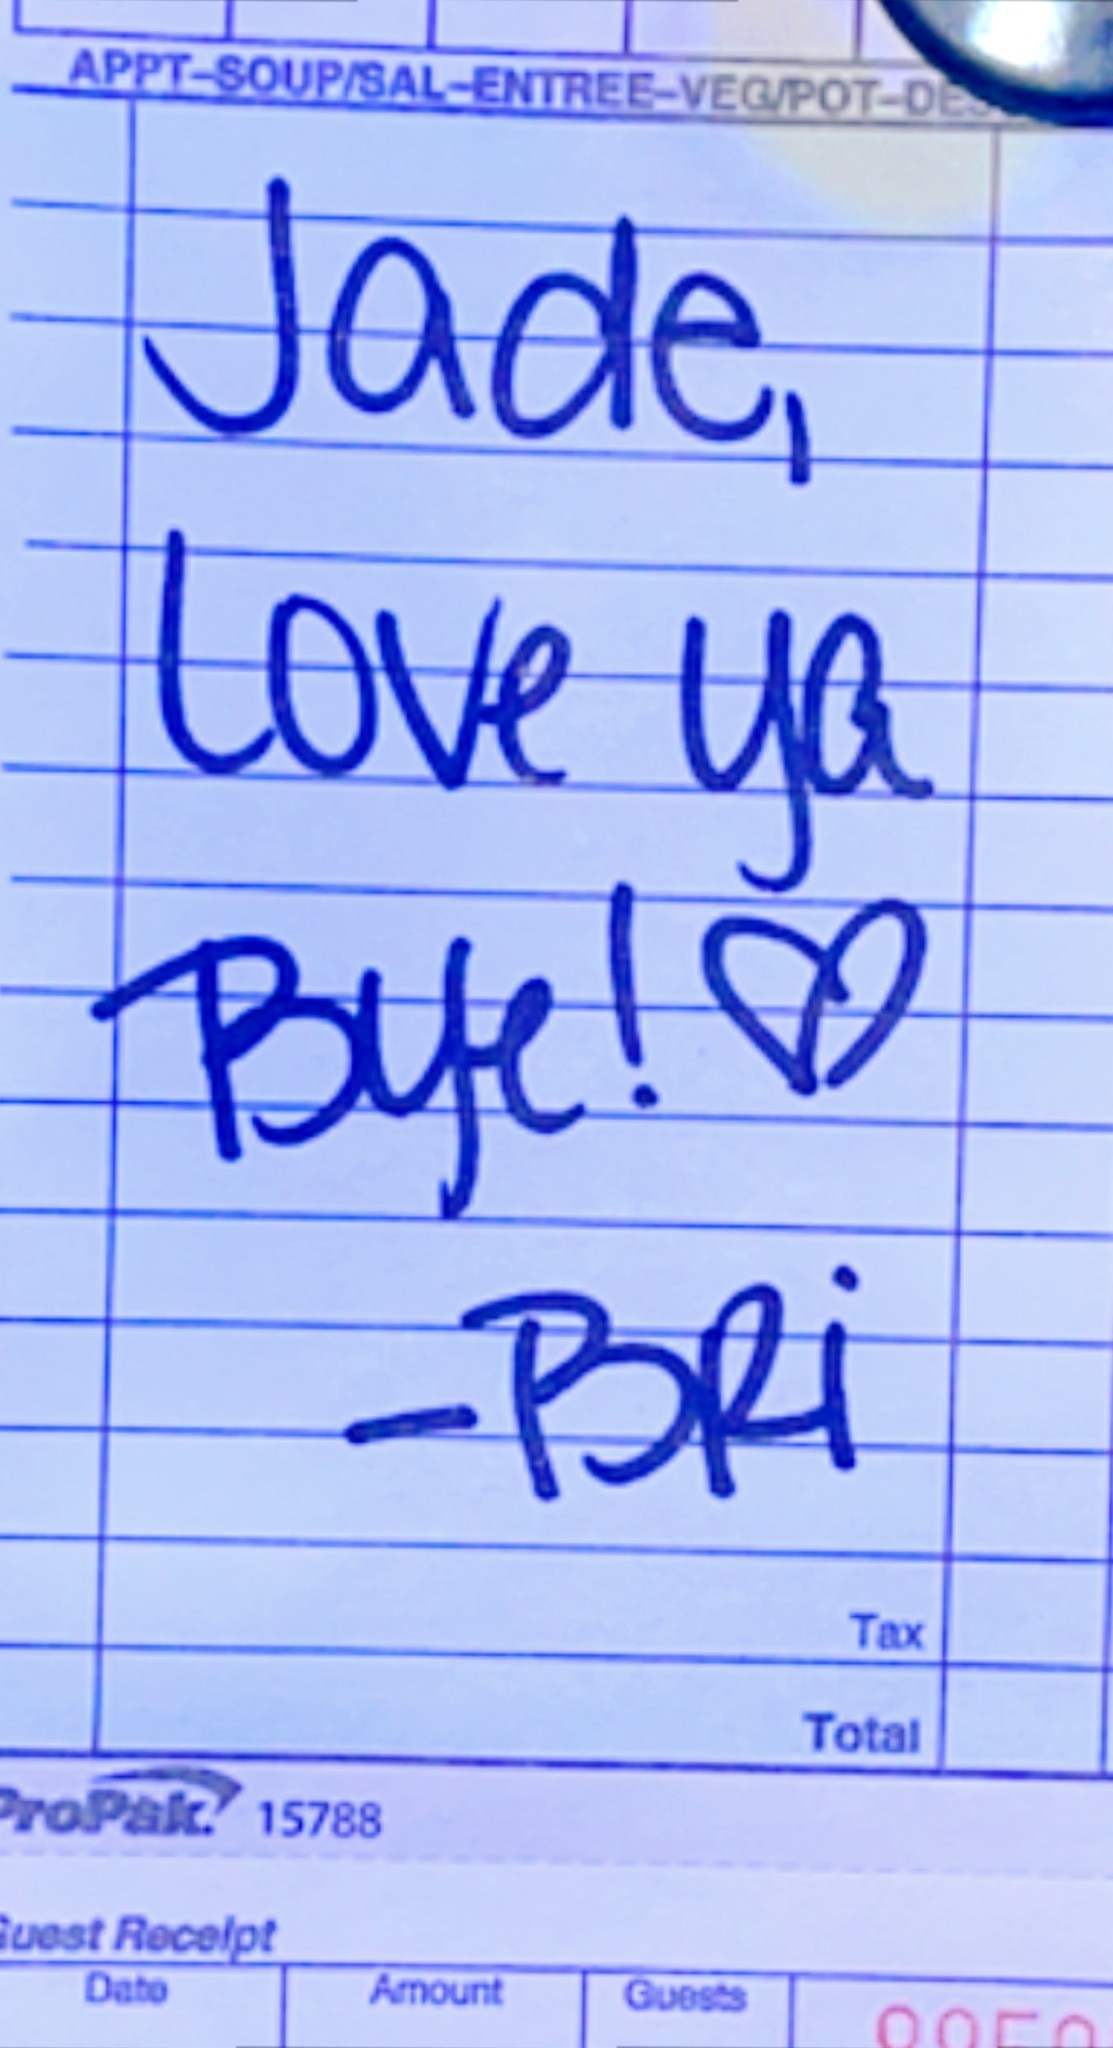 APPT-SOUP/SAL-ENTREE-VEG/POT-
Jade,
Love ya
Bye! ♡
-BRi
Tax
Total
ProPak. 15788
Guest Receipt
Date Amount Guests